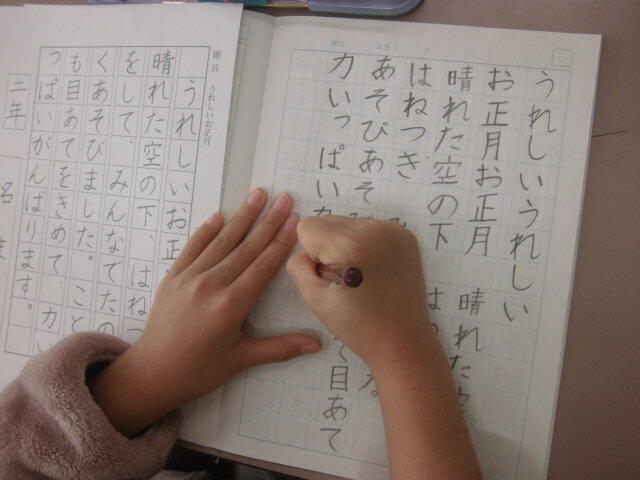 がつ にち( )
うれしいうれしい
お正月お正月 晴れた空
晴れた空の下 は
はねつぎ、
あそびあそび
力いっぱい て目あて
題目 うれしいお正月
うれしいお正
晴れた空の下、はねつ
をして、みんなでたの
くあそびました。こと
も目あてをきめて 力い
っぱいがんばります。
二年 名